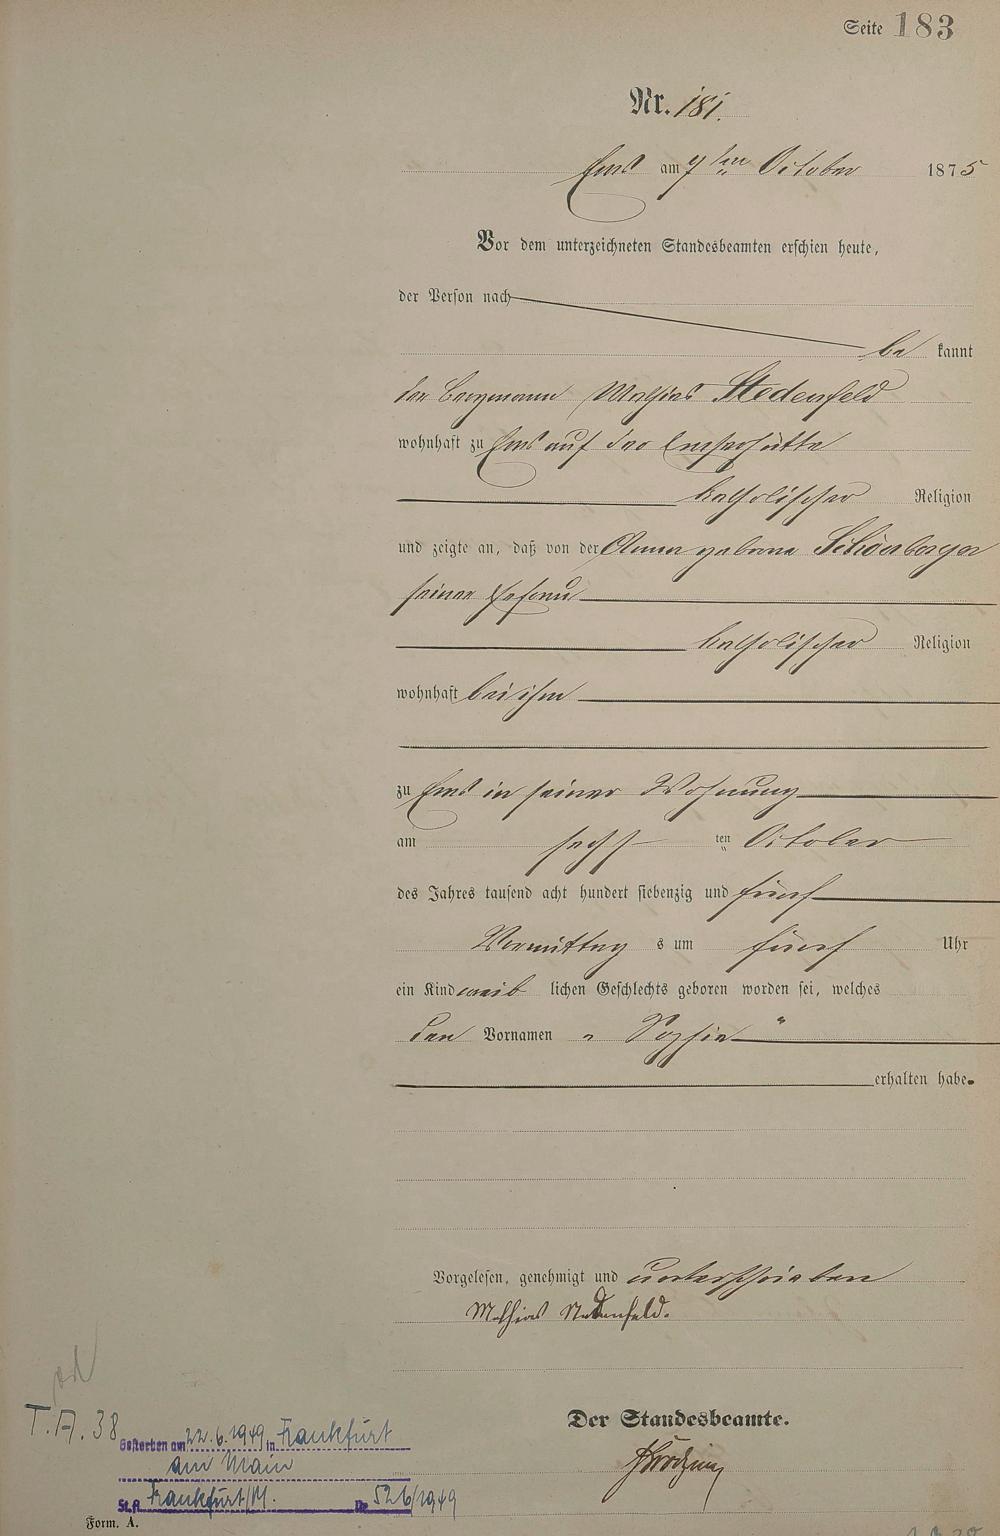 Seite 183
Nr. 181.
Ems am 7ten October 1875
Vor dem unterzeichneten Standesbeamten erschien heute,
der Person nach
be kannt
der Bergmann Mathias Stedenfeld
wohnhaft zu Ems auf der Emserhütte
katholischer Religion
und zeigte an, daß von der Anna geborne Schönberger
seiner Ehefrau
katholischer Religion
wohnhaft bei ihm
zu Ems in seiner Wohnung
am sechs ten October
des Jahres tausend acht hundert siebenzig und fünf
Vormittag s um fünf Uhr
ein Kind weib lichen Geschlechts geboren worden sei, welches
den Vornamen „ Sophie "
erhalten habe.
Vorgelesen, genehmigt und unterschrieben
Mathias Stedenfeld.
Der Standesbeamte.
T.A. 38
Gestorben am 22.6.1949 in Frankfurt
am Main
St.A. Frankfurt/M. Nr 526/1949
Form. A.